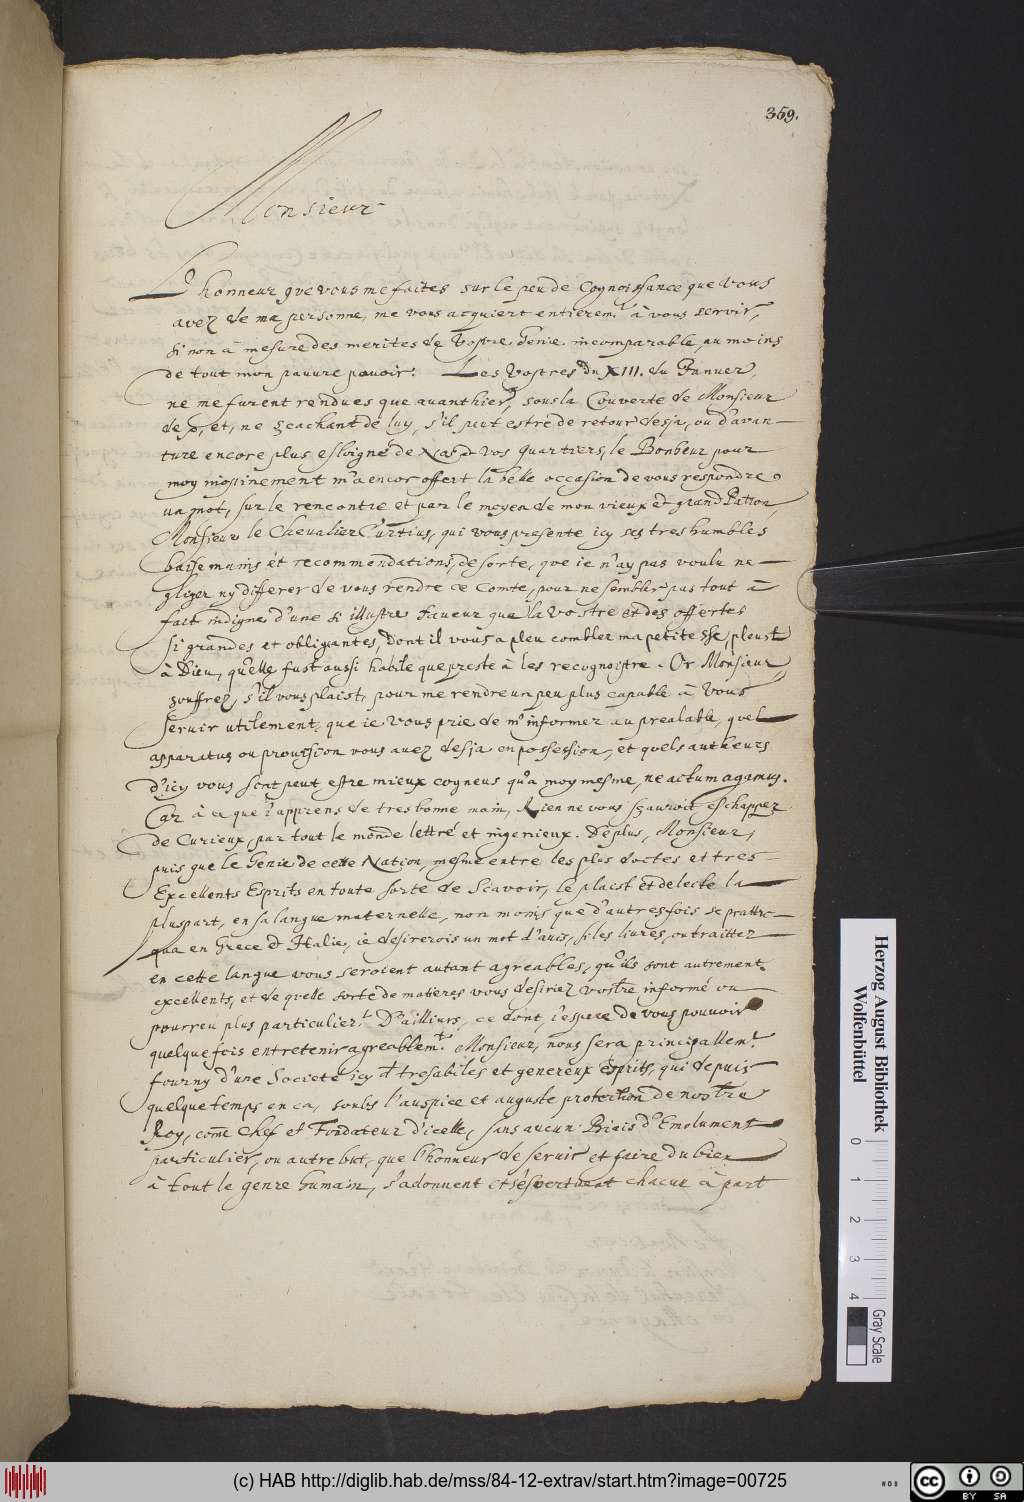 359.
Monsieur
L'honneur que vous me faites sur le peu de Cognoissance que vous
avez de ma personne, me vous acquiert entierem.t à vous servir,
si non à mesure des merites de vostre Genie incomparable, au moins
de tout mon pauvre pouvoir. Les Vostres du XIII. du Januer,
ne me furent rendues que avanthier, sous la Couverte de Monsieur
de et, ne sçachant de luy, s'il peut estre de retour desja, ou d'avan-
ture encore plus esloigné de vos quartiers, le Bonheur pour
moy mesme m'a encor offert la belle occasion de vous respondre
un mot, sur le rencontre et par le moyen de mon vieux et grand Patron,
Monsieur le Chevalier Curtius, qui vous presente icy ses tres humbles
baisemains et recommendations, de sorte, que ie n'ay pas voulu ne-
gliger ny differer de vous rendre ce Comte, pour ne sembler pas tout à
fait indigne d'une si illustre faveur que la vostre et des offertes
si grandes et obligeantes, dont il vous a pleu combler ma petitesse, pleust
à Dieu, qu'elle fust aussi habile que preste à les recognoistre. Or Monsieur
souffrez, s'il vous plaist, pour me rendre un peu plus capable à vous
servir utilement, que ie vous prie de m'informer au prealable, quel
apparatus ou provision vous avez desja en possession, et quels autheurs
d'icy vous sont peut estre mieux cogneus qu'a moy mesme, ne actum agamus.
Car à ce que i'apprens de tres bonne main, Rien ne vous sçauroit eschapper
de Curieux, par tout le monde lettré et ingenieux. De plus, Monsieur,
puis que le Genie de cette Nation, mesme entre les plus doctes et tres-
Excellents Esprits en toute sorte de Scavoir, se plaist et delecte la
pluspart, en sa langue maternelle, non moins que d'autresfois se prattic-
qua en Grece & Italie, ie desirerois un mot d'avis, si les livres, ou traittez
en cette langue vous seroient autant agreables, qu'ils sont autrement
excellents, et de quelle sorte de matieres vous desiriez vostre informé ou
pourveu plus particulier.t D'ailleurs, ce dont, i'espere de vous pouvoir
quelquefois entretenir agreablem.t Monsieur, nous sera principallem.t
fourny d'une Societé icy & tres abiles et genereux Esprits, qui depuis
quelque temps en ca, soubs l'auspice et auguste protection de nostre
Roy, come Chef et Fondateur d'icelle, sans aucun Biais d'Emolument
particulier, ou autre but, que l'honneur de servir et faire du bien
à tout le genre humain, s'adonnent et s'esvertuent chacun à part
Herzog August Bibliothek
Wolfenbüttel
0 1 2 3 4
Gray Scale
(c) HAB http://diglib.hab.de/mss/84-12-extrav/start.htm?image=00725
cc BY SA